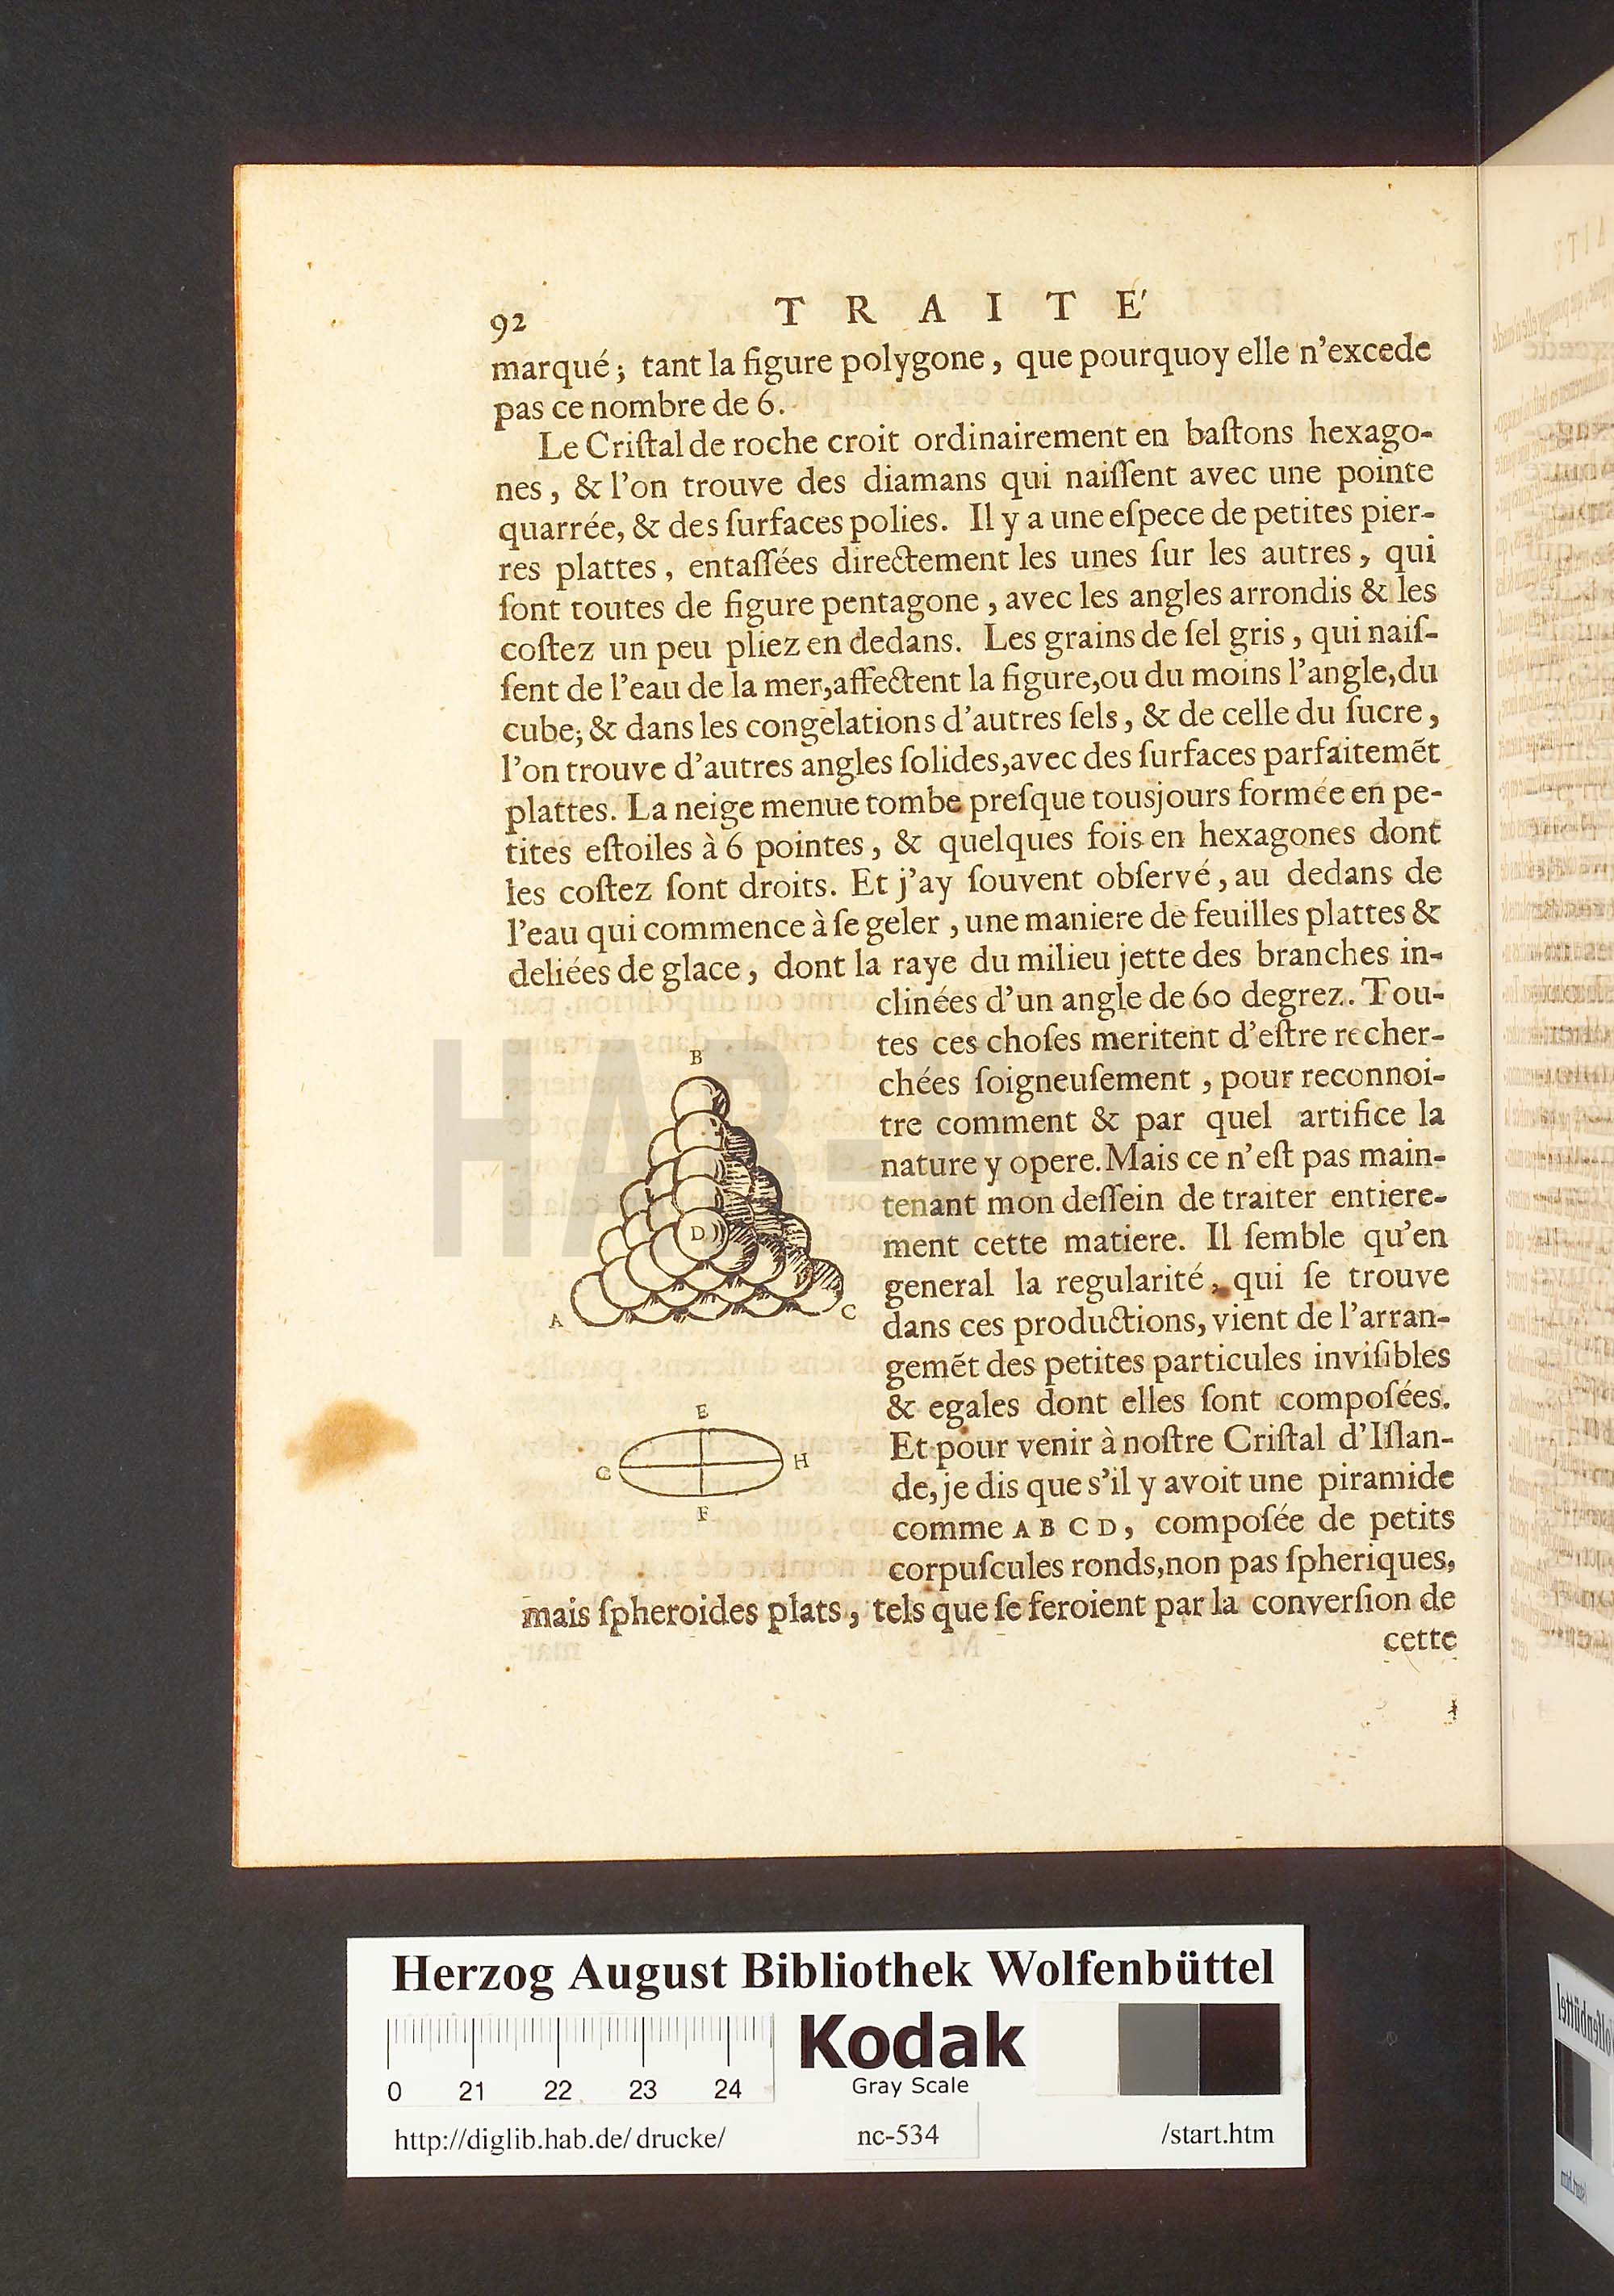 92
TRAITE'
marqué; tant la figure polygone, que pourquoy elle n'excede
pas ce nombre de 6.
Le Criſtal de roche croit ordinairement en baſtons hexago-
nes, & l'on trouve des diamans qui naiſſent avec une pointe
quarrée, & des ſurfaces polies. Il y a une eſpece de petites pier-
res plattes, entaſſées directement les unes ſur les autres, qui
ſont toutes de figure pentagone, avec les angles arrondis & les
coſtez un peu pliez en dedans. Les grains de ſel gris, qui naiſ-
ſent de l'eau de la mer, affectent la figure, ou du moins l'angle, du
cube; & dans les congelations d'autres ſels, & de celle du ſucre,
l'on trouve d'autres angles ſolides, avec des ſurfaces parfaitemẽt
plattes. La neige menue tombe preſque tousjours formée en pe-
tites eſtoiles à 6 pointes, & quelques fois en hexagones dont
les coſtez ſont droits. Et j'ay ſouvent obſervé, au dedans de
l'eau qui commence à ſe geler, une maniere de feuilles plattes &
deliées de glace, dont la raye du milieu jette des branches in-
clinées d'un angle de 60 degrez. Tou-
tes ces choſes meritent d'eſtre recher-
chées ſoigneuſement, pour reconnoi-
tre comment & par quel artifice la
nature y opere. Mais ce n'eſt pas main-
tenant mon deſſein de traiter entiere-
ment cette matiere. Il ſemble qu'en
general la regularité, qui ſe trouve
dans ces productions, vient de l'arran-
gemẽt des petites particules inviſibles
& egales dont elles ſont compoſées.
Et pour venir à noſtre Criſtal d'Iſlan-
de, je dis que s'il y avoit une piramide
comme A B C D, compoſée de petits
corpuſcules ronds, non pas ſpheriques,
mais ſpheroides plats, tels que ſe feroient par la converſion de
cette
B
D
A
C
E
G
H
F
HAB
Herzog August Bibliothek Wolfenbüttel
Kodak
Gray Scale
0 21 22 23 24
http://diglib.hab.de/drucke/
nc-534
/start.htm